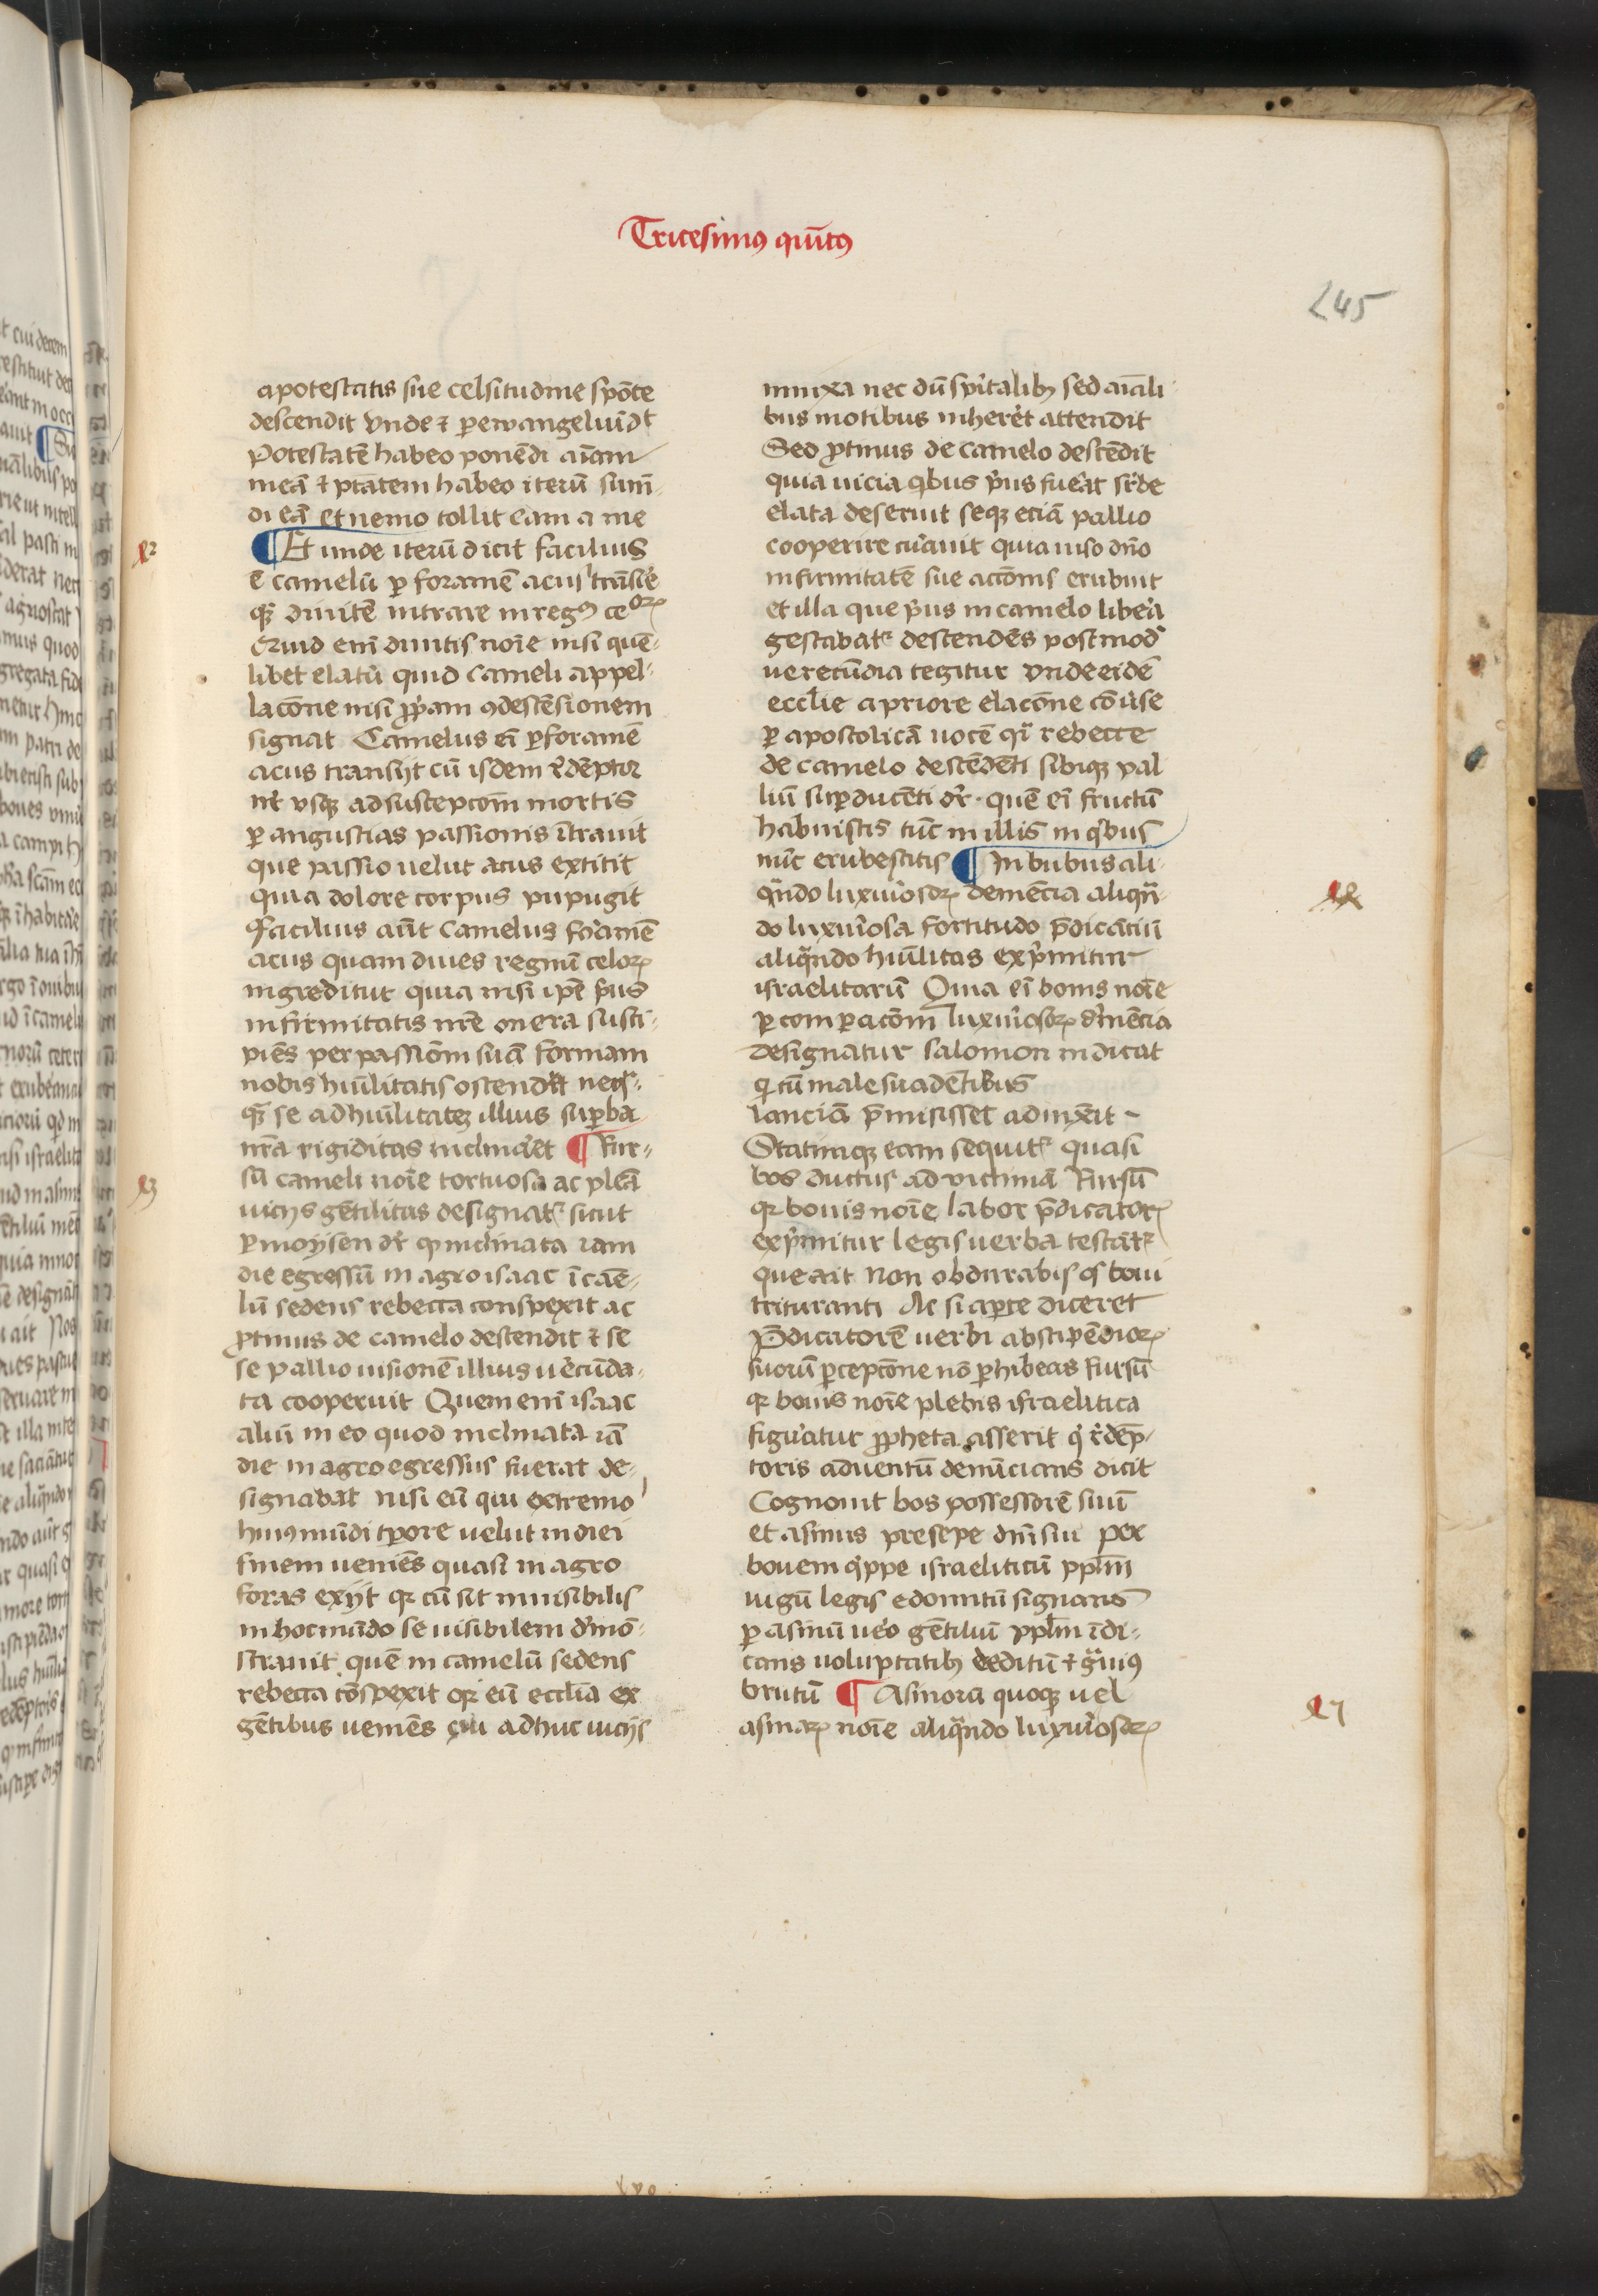 Tricesimꝰ quītꝰ
245
a potestatis sue celsitudine spōte
descendit vnde ⁊ per ewangeliū dt
Potestatē habeo ponēdi aīam
meā ⁊ ptātem habeo iterū sum̄-
di eā et nemo tollit eam a me
¶ Et unde iterū dicit facilius
ē camelū ꝑ foramē acus trāsire
qꝫ diuitē intrare in regnū ceorꝝ
Quid eni diuitis noīe nisi quē-
libet elatū quid cameli appel-
lacōne nisi ꝓpam ꝯdescēsionem
signat Camelus ei ꝑ foramē
acus transijt cū isdem redēptor
nr̄ vsqꝫ ad suscepcōm mortis
ꝑ angustias passionis ītrauit
que passio uelut acus extitit
quia dolore corpus pupugit
facilius aūt camelus foramē
acus quam diues regnū celorꝝ
ingreditur quia nisi ipē prius
infirmitatis nrē onera susci-
piēs per passiōm suā formam
nobis hūilitatis ostendēt neq-
qꝫ se ad hūilitatē illius suꝑba
nrā rigiditas inclinaret ¶ Rur-
sū cameli noīe tortuosa ac plēa
uicijs gētilitas designatᷣ sicut
ꝑ moysen dr̄ ꝙ inclinata iam
die egressū in agro isaac ī caē-
lū sedens rebecca conspexit ac
ꝓtinus de camelo descendit ⁊ se
se pallio uisionē illius uerecūda-
ta cooperuit Quem enī isaac
aliū in eo quod inclinata iā
die in agro egressus fuerat de-
signabat nisi eū qui extremo
huiꝰ mūdi tꝑore uelut in diei
finem ueniēs quasi in agro
foras exijt qꝛ cū sit inuisibilis
in hoc mūdo se uisibilem demō-
strauit quē in camelū sedens
rebecca cōspexit qꝛ eū ecclia ex
gētibus ueniēs cui adhuc uicijs
innixa nec dū spiritalibꝫ sed aiāli
bus motibus inheret attendit
Sed ꝓtinus de camelo descēdit
quia uicia qibus prius fuerat sr̄de
elata deseruit seqꝫ eciā pallio
cooperire curauit quia uiso dn̄o
infirmitatē sue accōnis erubuit
et illa que prius in camelo libera
gestabatᷣ descendēs postmod
uerecūdia tegitur vnde eidē
ecclie a priore elacōne cōuerse
ꝑ apostolicā uocē qī rebecce
de camelo descēdēti sibiqꝫ pal
liū suꝑducēti dr̄ · quē ei fructū
habuistis tūc in illis in qibus
nūc erubescitis ¶ In bubus ali
qn̄do luxuriosorꝝ demēcia aliqn̄-
do luxuriosa fortitudo p̄dicātiū
aliqn̄do hūilitas exprimitur
israelitarū Quia ei bouis noīe
ꝑ comꝑacōm luxuriosorꝝ demēcia
designatur salomon indicat
q cū male suadētibus
lanciā p̄misisset adiunxit -
Statimqꝫ eam sequitᷣ quasi
bos ductus ad victimā Rursū
qꝛ bouis noīe labor p̄dicatorꝝ
exprimitur legis uerba testātᷣ
que ait Non obdurabis os boui
trituranti Ac si aꝑte diceret
P̄dicatorē uerbi a bstipēdiorꝝ
suorū ꝑcepcōne nō ꝓhibeas Rursū
qꝛ bouis noīe plebis israelitica
figuratur ꝓpheta asserit q redēp-
toris aduentū denūcians dicit
Cognouit bos possessorē suū
et asinus presepe dn̄i sui per
bouem qippe israeliticū pplm
iugū legis edomitū signans
ꝑ asinū uero gētiliū pplm īdi-
cans uoluptatibꝫ deditū ⁊ grauiꝰ
brutū ¶ Asinorū quoqꝫ uel
asinarꝝ noīe aliqn̄do luxuriosorꝝ